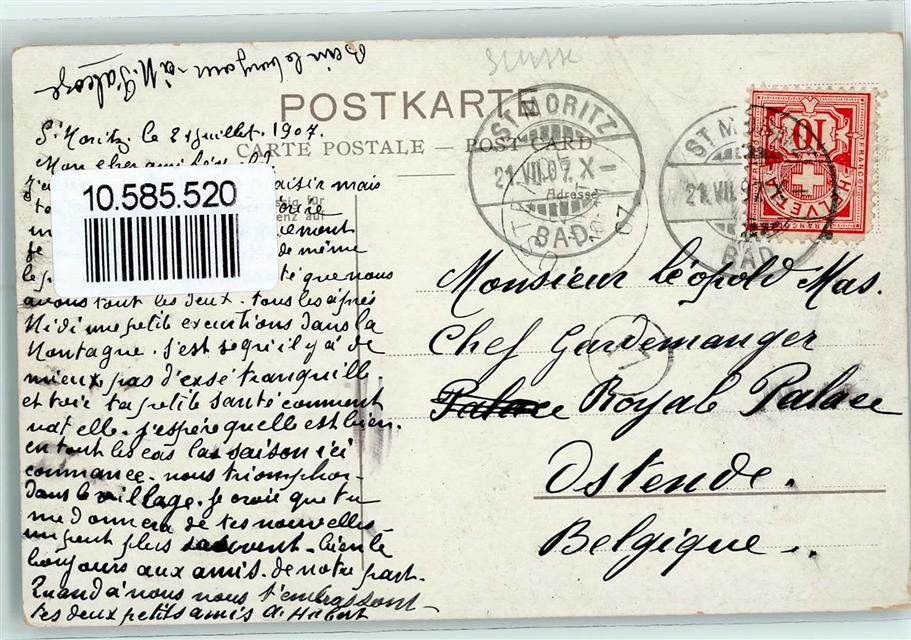 Bien le bonjour à M.
Suisse
POSTKARTE
CARTE POSTALE — POST CARD
Adresse
ST. MORITZ
21.VII.07. X–
BAD
ST. MORITZ
21.VII.07
BAD
10
HELVETIA
FRANCO
FRANCO
10.585.520
St Moritz le 21 juillet. 1907.
Mon cher ami
aisir mais
ssig für
enz auf
je
de même
le té que nous
avons tout les deux. tous les après
Midi une petite excurtions dans la
Montagne. s'est se qu'il y a de
mieux pas d'exsé tranquille.
et toie ta petite santé comment
vat elle. j'espère quelle est bien.
en tout les cas la saison ici
commance. nous triomphon
dans le village. je croie que tu
me donnera de tes nouvelles
un peut plus souvent. bien le
bonjours aux amis. de notre part.
Quand à nous nous t'embrassont
tes deux petits amis
Monsieur Léopold Mas.
Chef Gardemanger
Palace Royal Palace
Ostende.
Belgique.